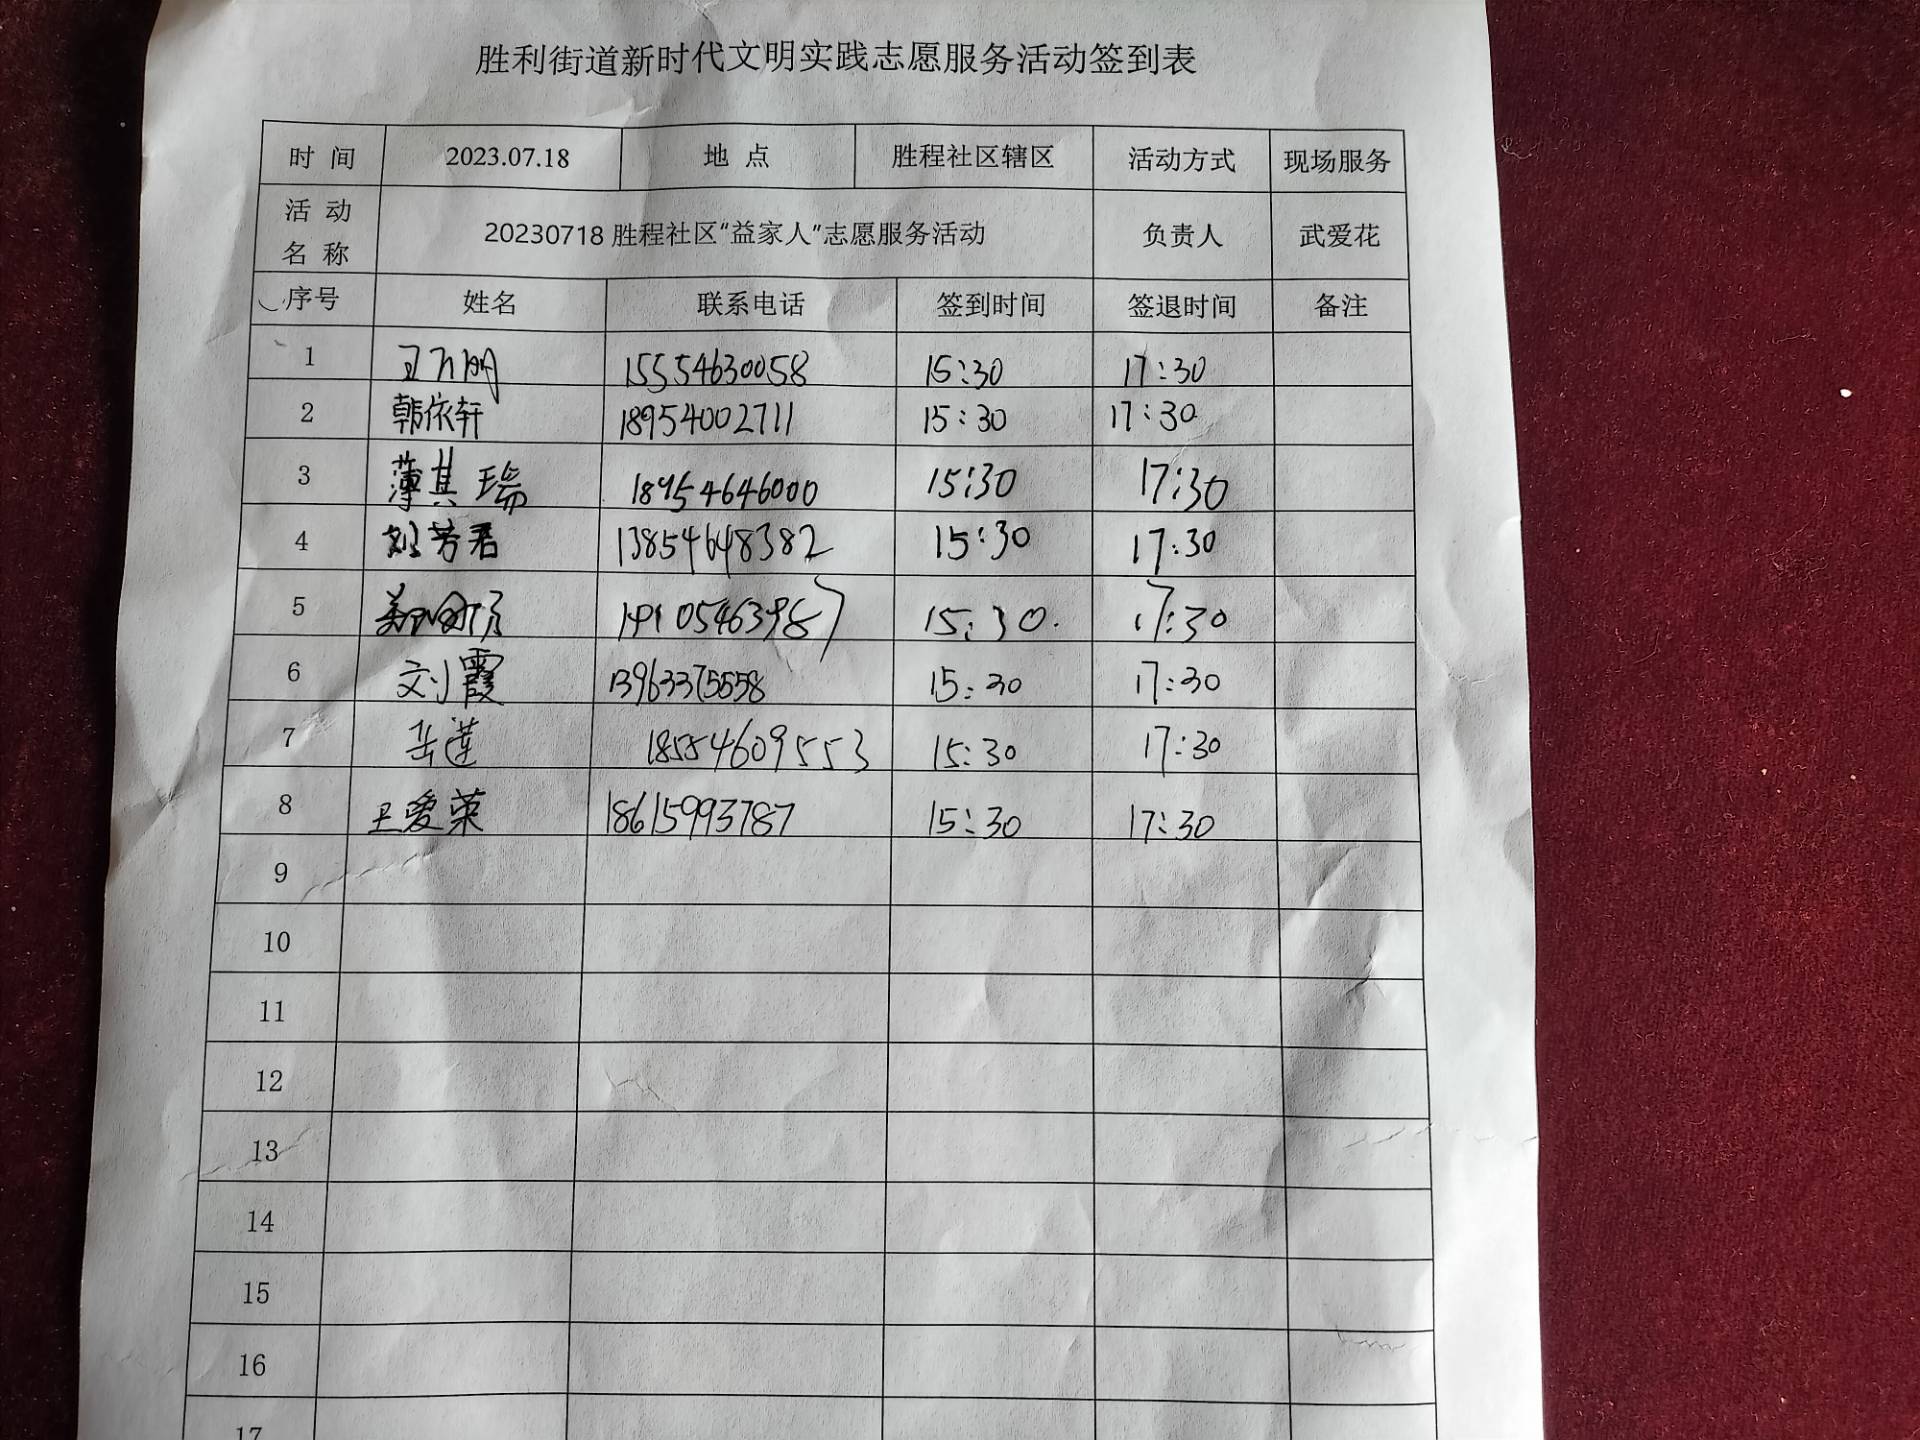 胜利街道新时代文明实践志愿服务活动签到表
时 间 2023.07.18 地 点 胜程社区辖区 活动方式 现场服务
活 动 名 称 20230718胜程社区“益家人”志愿服务活动 负责人 武爱花
序号 姓名 联系电话 签到时间 签退时间 备注
1 15554630058 15:30 17:30
2 韩依轩 18954002711 15:30 17:30
3 薄其瑞 18954646000 15:30 17:30
4 刘芳君 13854648382 15:30 17:30
5 15:30 17:30
6 刘霞 13963375558 15:30 17:30
7 岳莲 18554609553 15:30 17:30
8 王爱荣 18615993787 15:30 17:30
9
10
11
12
13
14
15
16
17